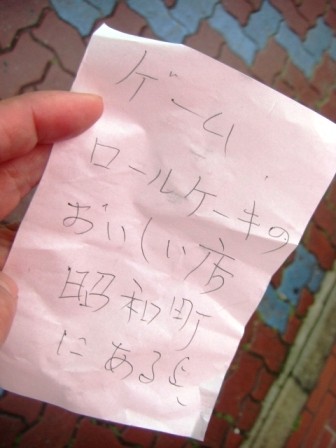 ゲーム
ロールケーキの
おいしい店
昭和町
にあると